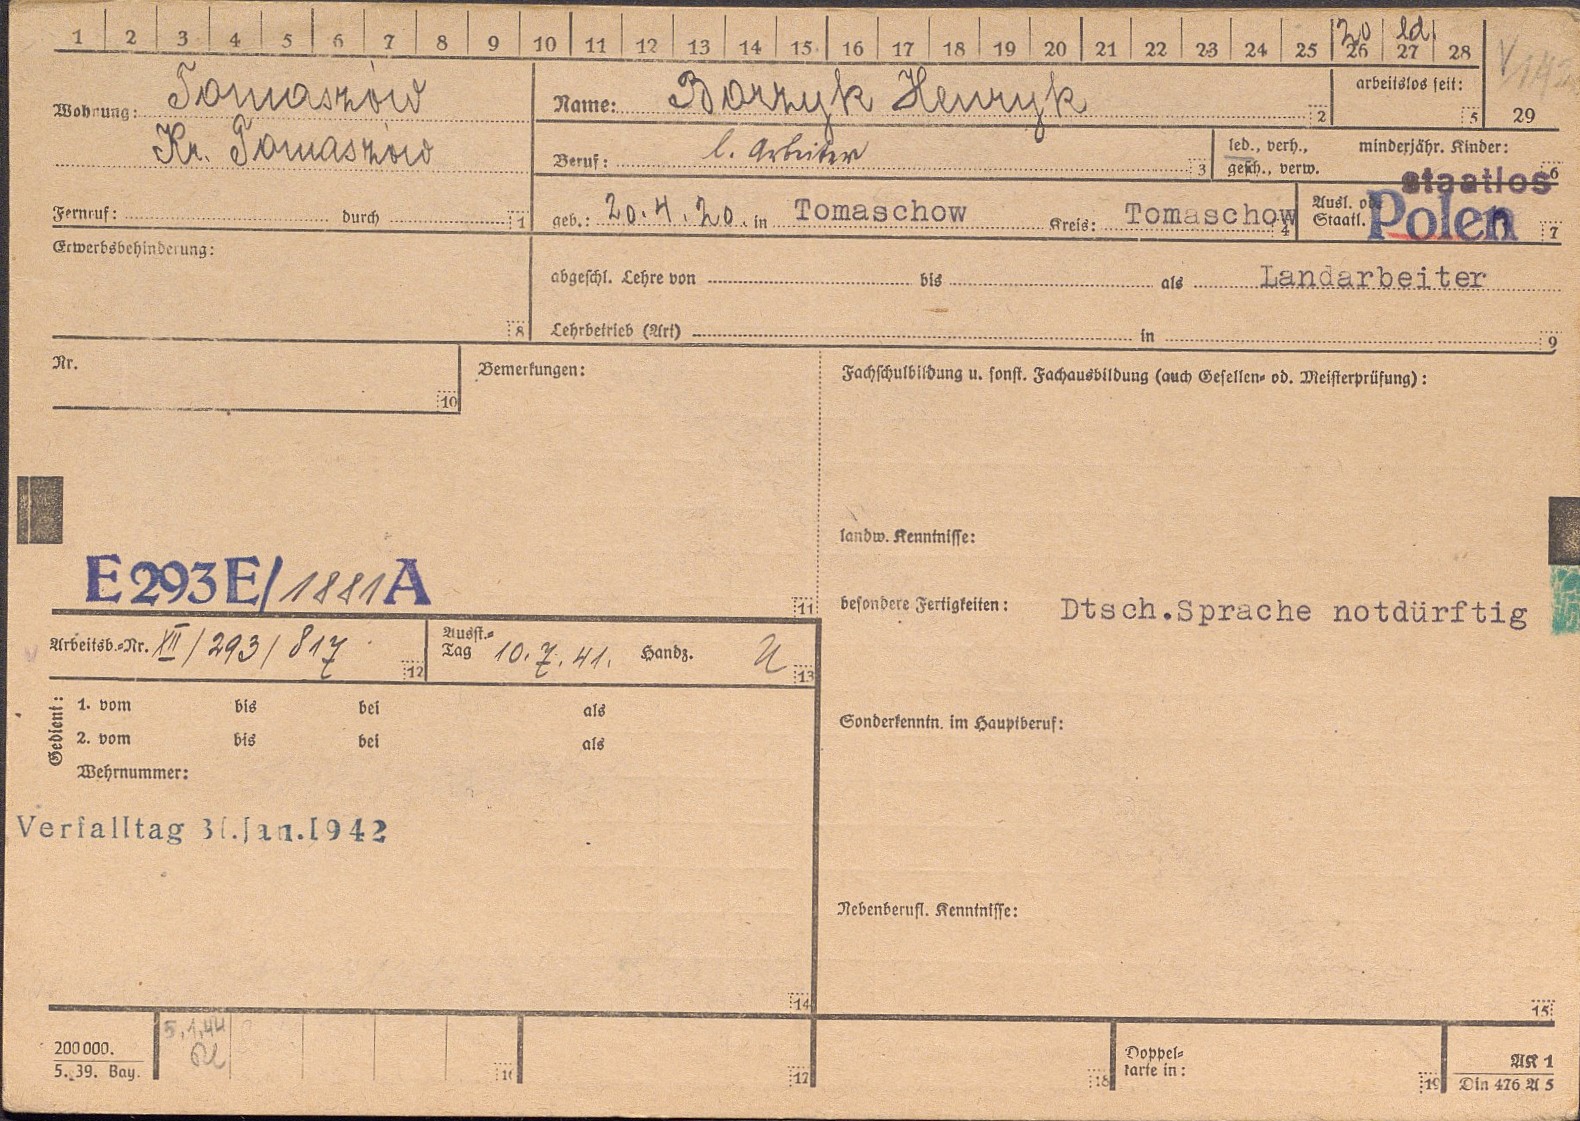 1 2 3 4 5 6 7 8 9 10 11 12 13 14 15 16 17 18 19 20 21 22 23 24 25 26 27 28
20 ld.
Wohnung: Tomaszów
Kr. Tomaszów
Name: Borzyk Henryk 2
arbeitslos seit: 5
29
Beruf: l. Arbeiter 3
led., verh.,
gesch., verw.
minderjähr. Kinder: 6
staatlos
Fernruf: durch 1
geb.: 20.4.20. in Tomaschow Kreis: Tomaschow 4
Ausl. od.
Staatl. Polen 7
Erwerbsbehinderung: 8
abgeschl. Lehre von bis als Landarbeiter
Lehrbetrieb (Art) in 9
Nr. 10
Bemerkungen:
Fachschulbildung u. sonst. Fachausbildung (auch Gesellen- od. Meisterprüfung):
landw. Kenntnisse:
E293E/1881A 11
besondere Fertigkeiten: Dtsch.Sprache notdürftig
Arbeitsb.-Nr. XII/293/817 12
Ausst.-
Tag 10.7.41. Handz. 13
Gedient:
1. vom bis bei als
2. vom bis bei als
Wehrnummer:
Sonderkenntn. im Hauptberuf:
Verfalltag 31.Jan.1942
Nebenberufl. Kenntnisse:
14 15
5.1.44
200000.
5. 39. Bay.
16 17 18
Doppel-
karte in: 19
AK 1
Din 476 A 5